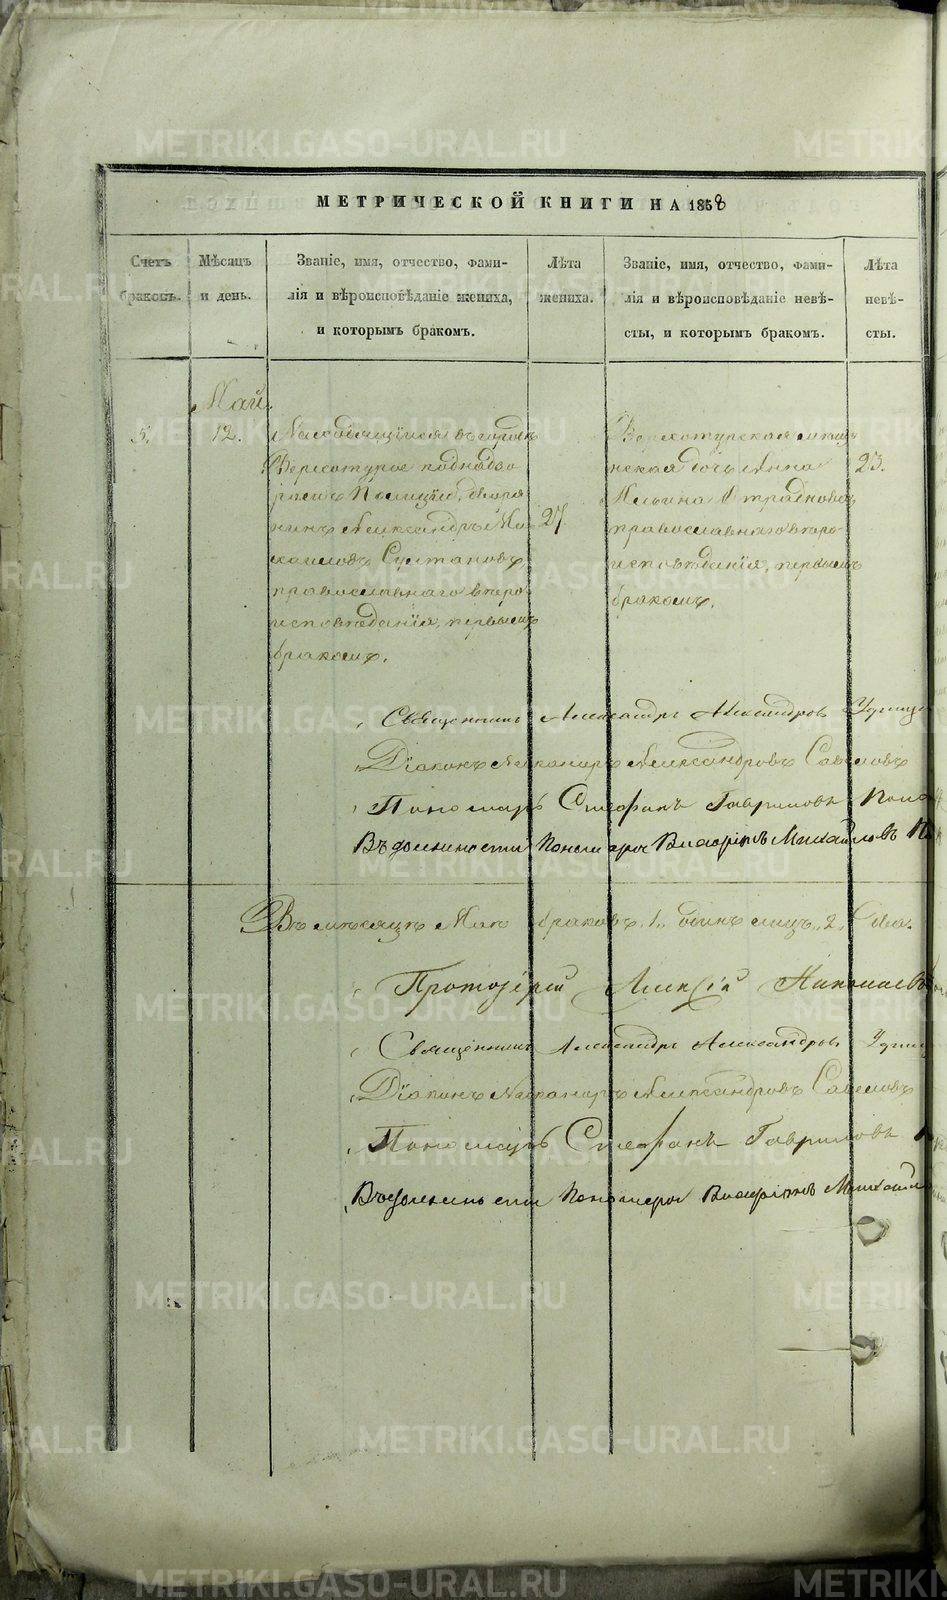 МЕТРИЧЕСКОЙ КНИГИ НА 1858
Счетъ браковъ.
Мѣсяцъ и день.
Званіе, имя, отчество, фами-
лія и вѣроисповѣданіе жениха,
и которымъ бракомъ.
Лѣта жениха.
Званіе, имя, отчество, фами-
лія и вѣроисповѣданіе невѣ-
сты, и которымъ бракомъ.
Лѣта невѣ-
сты.
Май
5.
12.
Находящійся въ городѣ
Верхотурье подъ надзо
ромъ Полиціи, дворя
нинъ Александръ Ми
хаиловъ Султановъ,
православнаго вѣро
исповѣданія, первымъ
бракомъ.
27
Верхотурская мѣщан
нская дочь Анна
Ильина Отраднова
православнаго вѣро
исповѣданія, первымъ
бракомъ.
23.
Священникъ Александръ Александровъ
Діаконъ Никаноръ Александровъ Савеловъ
Пономарь Стефанъ Гавриловъ
Въ должности Пономаря Михайловъ
Въ мѣсяцѣ Маѣ браковъ 1. лицъ 2.
Протоіерей Алексій Николаевъ
Священникъ Александръ Александровъ
Діаконъ Никаноръ Александровъ Савеловъ
Пономарь Стефанъ Гавриловъ
Въ должности Пономаря
METRIKI.GASO-URAL.RU